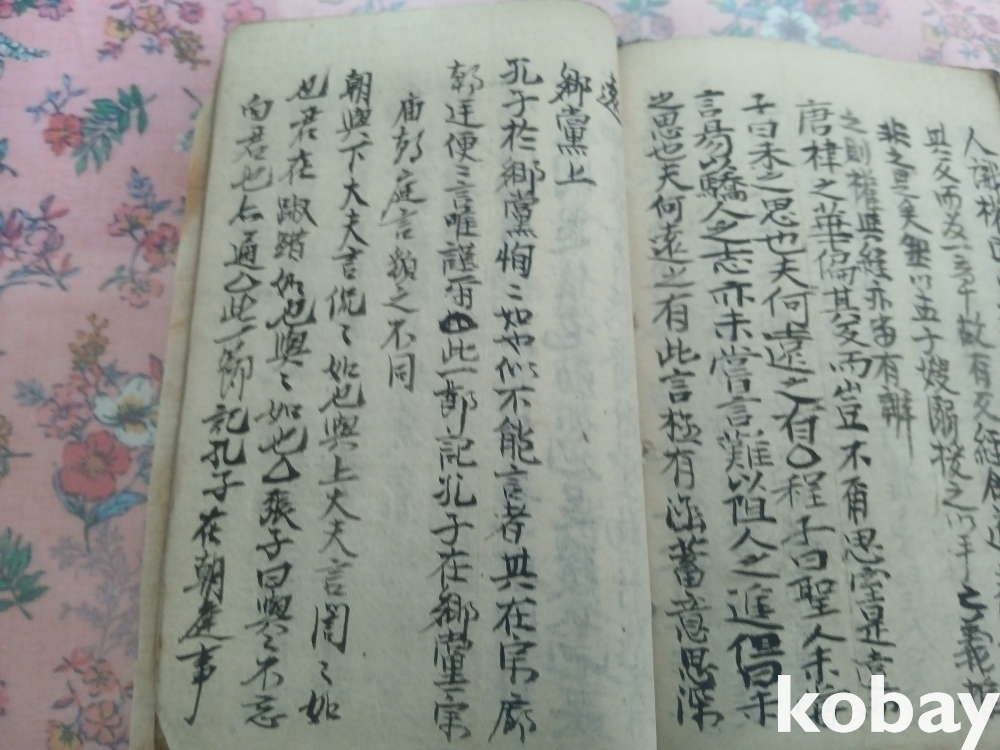 人
共反而爲一
非之是矣無以孟子嫂溺援之以手之義
之則權與經亦當有辨
唐棣之華偏其反而豈不爾思室是遠
子曰未之思也夫何遠之有○程子曰聖人未
言易以驕人之志亦未嘗言難以阻人之進但曰未
之思也夫何遠之有此言極有涵蓄意思深
遠
鄕黨上
孔子於鄕黨恂〻如也似不能言者其在宗廟
朝廷便〻言唯謹爾○此一節記孔子在鄕黨宗
庙朝庭言貌之不同
朝與下大夫言侃〻如也與上大夫言誾〻如
也君在踧踖如也與〻如也○張子曰與〻不忘
向君也亦通○此一節記孔子在朝廷事
kobay